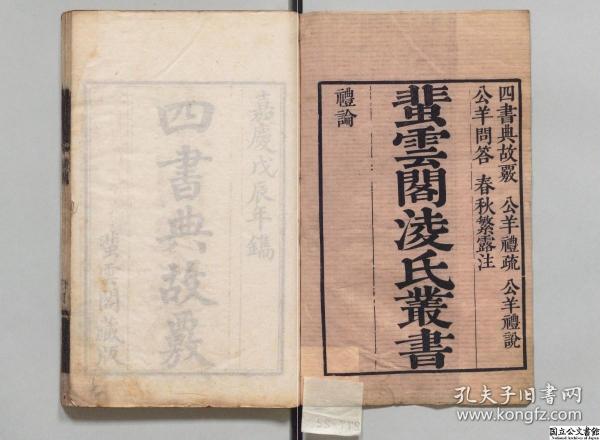 四書典故覈　公羊禮疏　公羊禮說
公羊問答　春秋繁露注
蜚雲閣淩氏叢書
禮論
嘉慶戊辰年鐫
四書典故覈
蜚雲閣藏版
孔夫子旧书网
www.kongfz.com
国立公文書館
National Archives of Japan